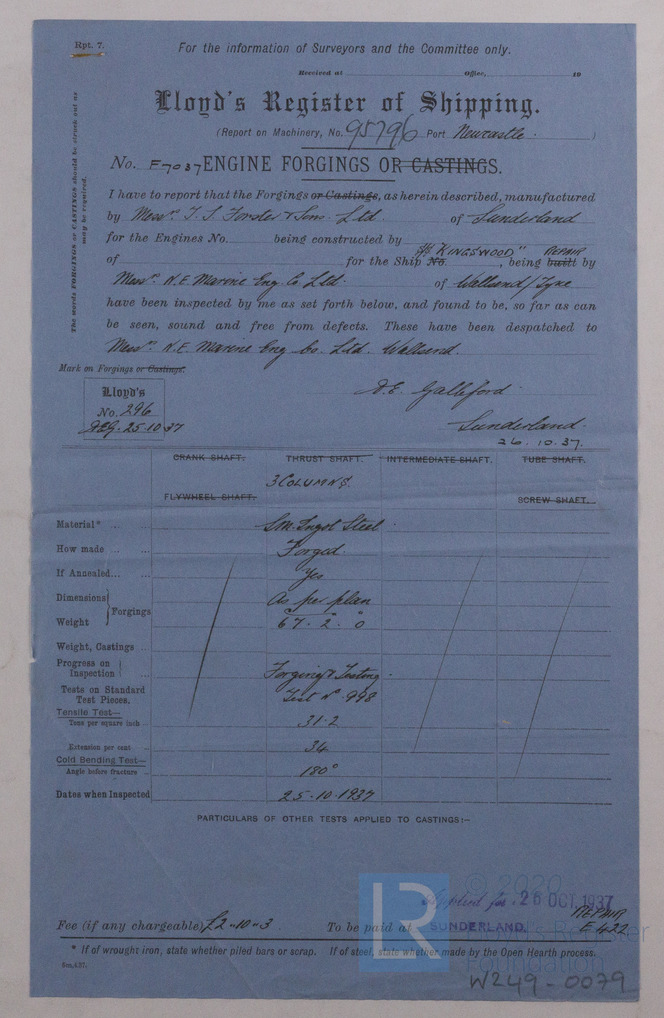 Rpt. 7.
For the information of Surveyors and the Committee only.
Received at Office, 19
Lloyd's Register of Shipping.
(Report on Machinery, No. 95796 Port Newcastle.)
No. F7037 ENGINE FORGINGS OR CASTINGS.
The words FORGINGS or CASTINGS should be struck out as
may be required.
I have to report that the Forgings or Castings, as herein described, manufactured
by Messrs T. S. Forster & Sons Ltd of Sunderland
for the Engines No. being constructed by
"KINGSWOOD" REPAIR
of for the Ship No. , being built by
Messrs N.E. Marine Eng Co Ltd. of Wallsend/Tyne
have been inspected by me as set forth below, and found to be, so far as can
be seen, sound and free from defects. These have been despatched to
Messrs N.E. Marine Eng Co. Ltd. Wallsend.
Mark on Forgings or Castings.
Lloyd's
No. 296
AEG. 25.10.37
A.E. Galleford
Sunderland.
26.10.37.
CRANK SHAFT. THRUST SHAFT. INTERMEDIATE SHAFT. TUBE SHAFT.
3 COLUMNS.
FLYWHEEL SHAFT. SCREW SHAFT.
Material* S.M. Ingot Steel
How made Forged
If Annealed Yes
Dimensions As per plan
Forgings
Weight 67. 2. 0
Weight, Castings
Progress on
Inspection Forging & Testing.
Tests on Standard Test No. 998
Test Pieces.
Tensile Test—
Tons per square inch 31.2
Extension per cent 34
Cold Bending Test—
Angle before fracture 180°
Dates when Inspected 25.10.1937
PARTICULARS OF OTHER TESTS APPLIED TO CASTINGS:—
© 2020
LR
Applied for 26 OCT 1937
REPAIR
Fee (if any chargeable) £2"10"3 To be paid at SUNDERLAND. E 422
Lloyd's Register
Foundation
* If of wrought iron, state whether piled bars or scrap. If of steel, state whether made by the Open Hearth process.
5m,4,37.
W249-0079